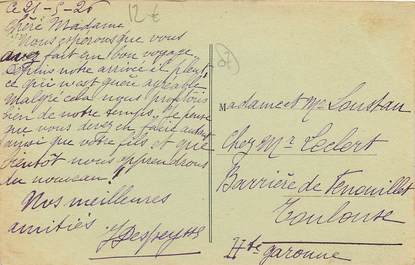 Ce 21-5-26
Chère Madame
Nous espérons que vous
avez fait un bon voyage.
Depuis notre arrivée il pleut
ce qui n'est guère agréable
Malgré cela nous profitons
bien de notre temps. Je pense
que vous devez en faire autant
ainsi que votre fils et que
bientôt nous apprendrons
du nouveau!
Nos meilleures
amitiés
12 €
Madame et Mr Loustau
Chez Mr Leclert
Barrière de Fenouillet
Toulouse
Hte garonne